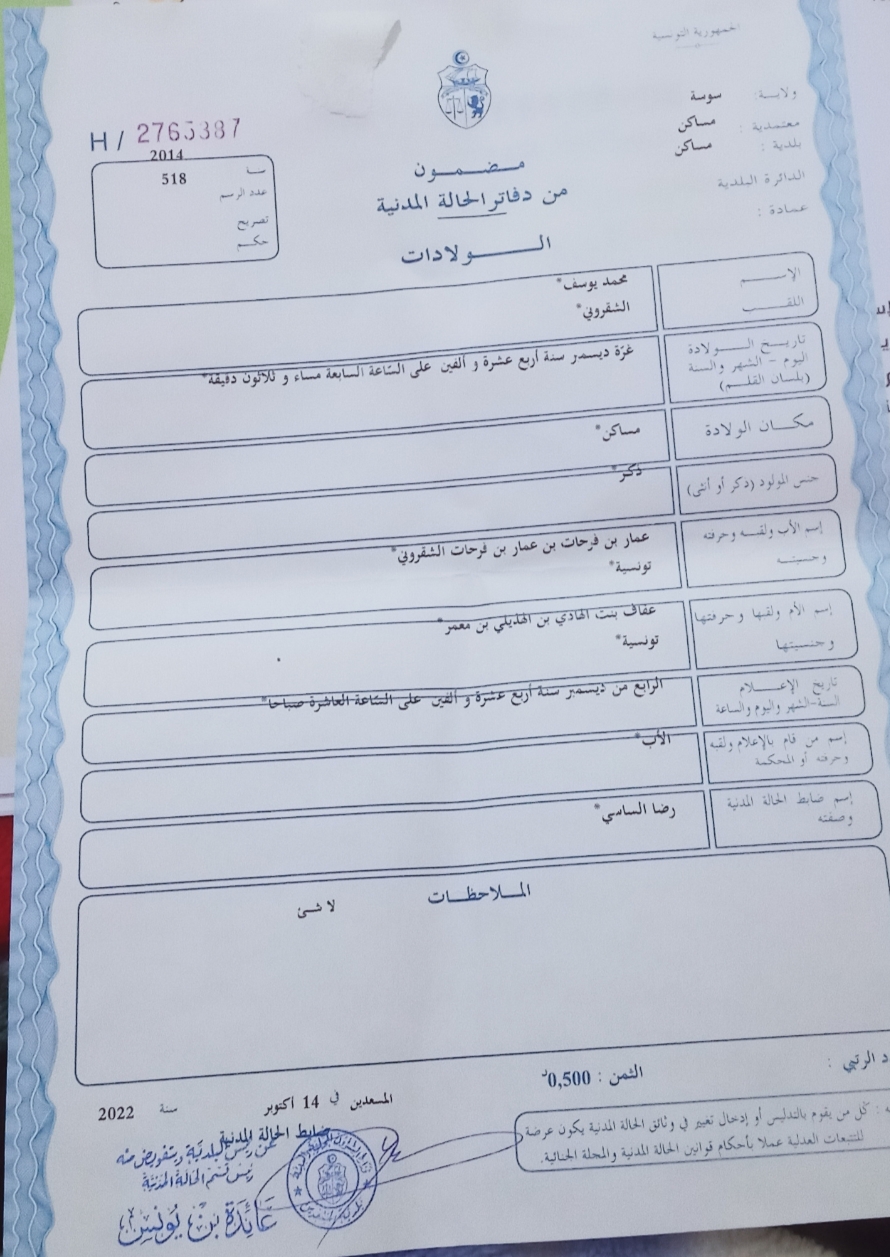 الجمهورية التونسية
ولاية: سوسة
معتمدية : مساكن
بلدية : مساكن
الدائرة البلدية
عمادة :
H / 2765387
سنة 2014
عدد الرسم 518
تصريح
حكم
مضمون
من دفاتر الحالة المدنية
الولادات
الإسم محمد يوسف*
اللقب الشقروني*
تاريخ الولادة
اليوم - الشهر والسنة
(بلسان القلم)
غرّة ديسمبر سنة أربع عشرة و ألفين على السّاعة السابعة مساء و ثلاثون دقيقة*
مكان الولادة مساكن*
جنس المولود (ذكر أو أنثى) ذكر*
إسم الأب ولقبه وحرفته عمار بن فرحات بن عمار بن فرحات الشقروني*
وجنسيته تونسية*
إسم الأم ولقبها وحرفتها عفاف بنت الهادي بن الهذيلي بن معمر*
وجنسيتها تونسية*
تاريخ الإعلام
السنة-الشهر واليوم والساعة
الرابع من ديسمبر سنة أربع عشرة و ألفين على السّاعة العاشرة صباحا*
إسم من قام بالإعلام ولقبه
وحرفته أو المحكمة
الأب*
إسم ضابط الحالة المدنية
وصفته
رضا الساسي*
الملاحظات
لا شئ
د الرتبي :
الثمن : 0,500د
المسعدين في 14 أكتوبر سنة 2022
ضابط الحالة المدنية
عن رئيس البلدية وبتفويض منه
رئيس قسم الحالة المدنية
عائدة بن يونس
ه : كل من يقوم بالتدليس أو إدخال تغيير في وثائق الحالة المدنية يكون عرضة
للتتبعات العدلية عملا بأحكام قوانين الحالة المدنية والمجلة الجنائية.